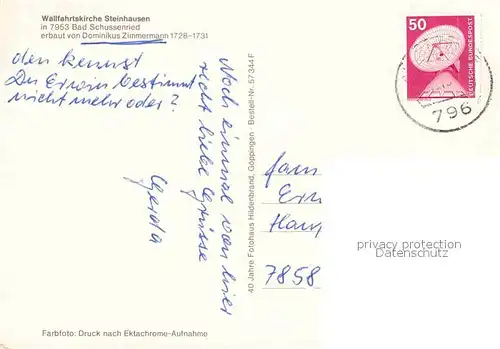 Wallfahrtskirche Steinhausen
in 7953 Bad Schussenried
erbaut von Dominikus Zimmermann 1728-1731
den kennst
Du Erwin bestimmt
nicht mehr oder?
Noch einmal von hier
recht liebe Grüsse
Gerda
40 Jahre Fotohaus Hildenbrand, Göppingen - Bestell-Nr. 57 344 F
50
DEUTSCHE BUNDESPOST
796
Fam
7858
privacy protection
Datenschutz
Farbfoto: Druck nach Ektachrome-Aufnahme